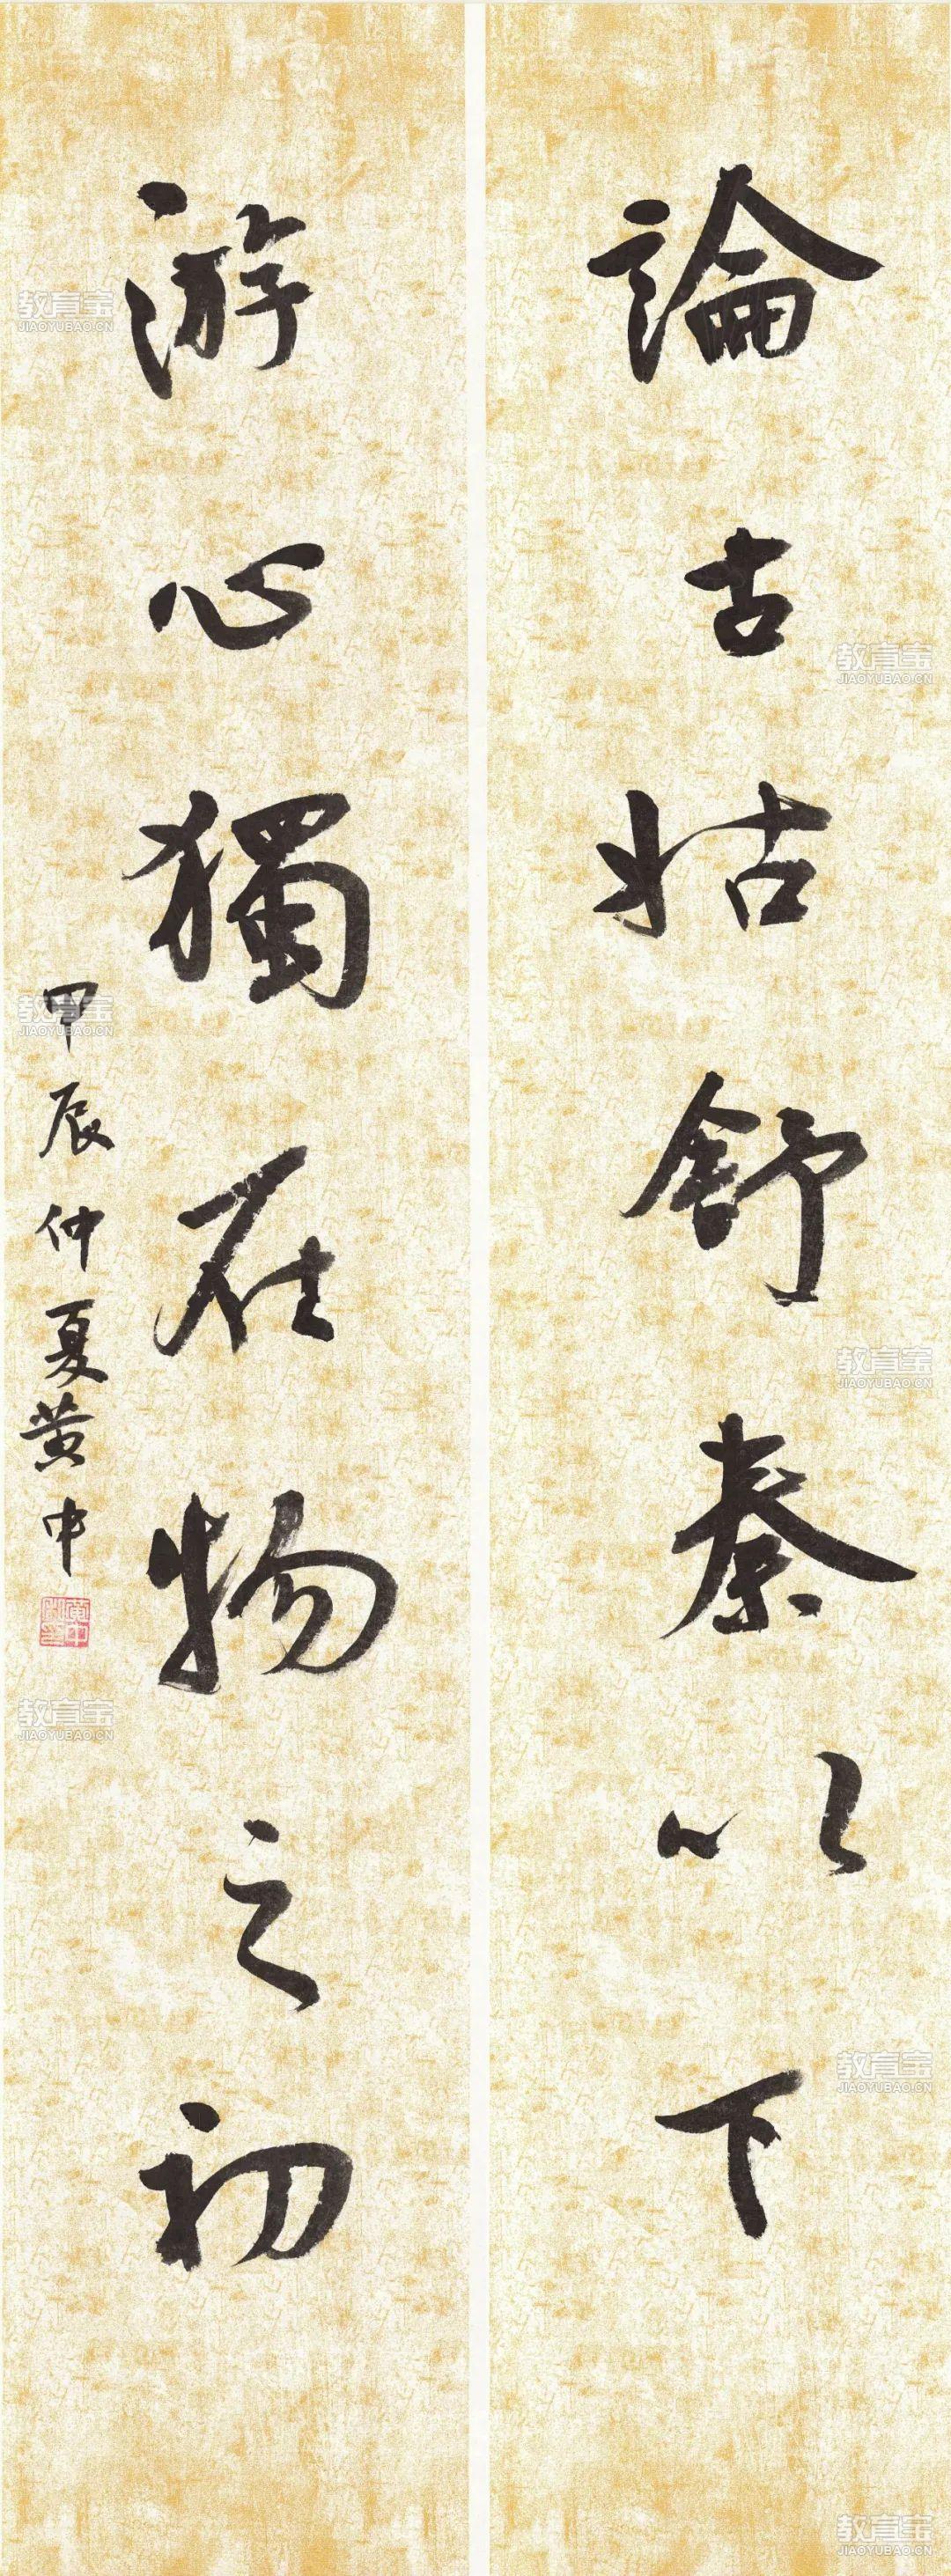 論古姑舒秦以下
游心獨在物之初
甲辰仲夏黄中
教育宝
JIAOYUBAO.CN
教育宝
JIAOYUBAO.CN
教育宝
JIAOYUBAO.CN
教育宝
JIAOYUBAO.CN
教育宝
JIAOYUBAO.CN
教育宝
JIAOYUBAO.CN
教育宝
JIAOYUBAO.CN